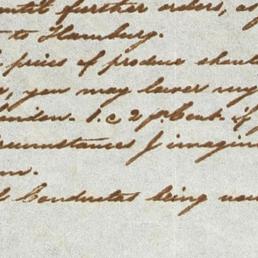 until further orders, as
t to Hamburg.
prices of produce shoul
, you may lower my
London. 1. c 2 p. Cent. if
rcumstances I imagin
m.
Conductas being now